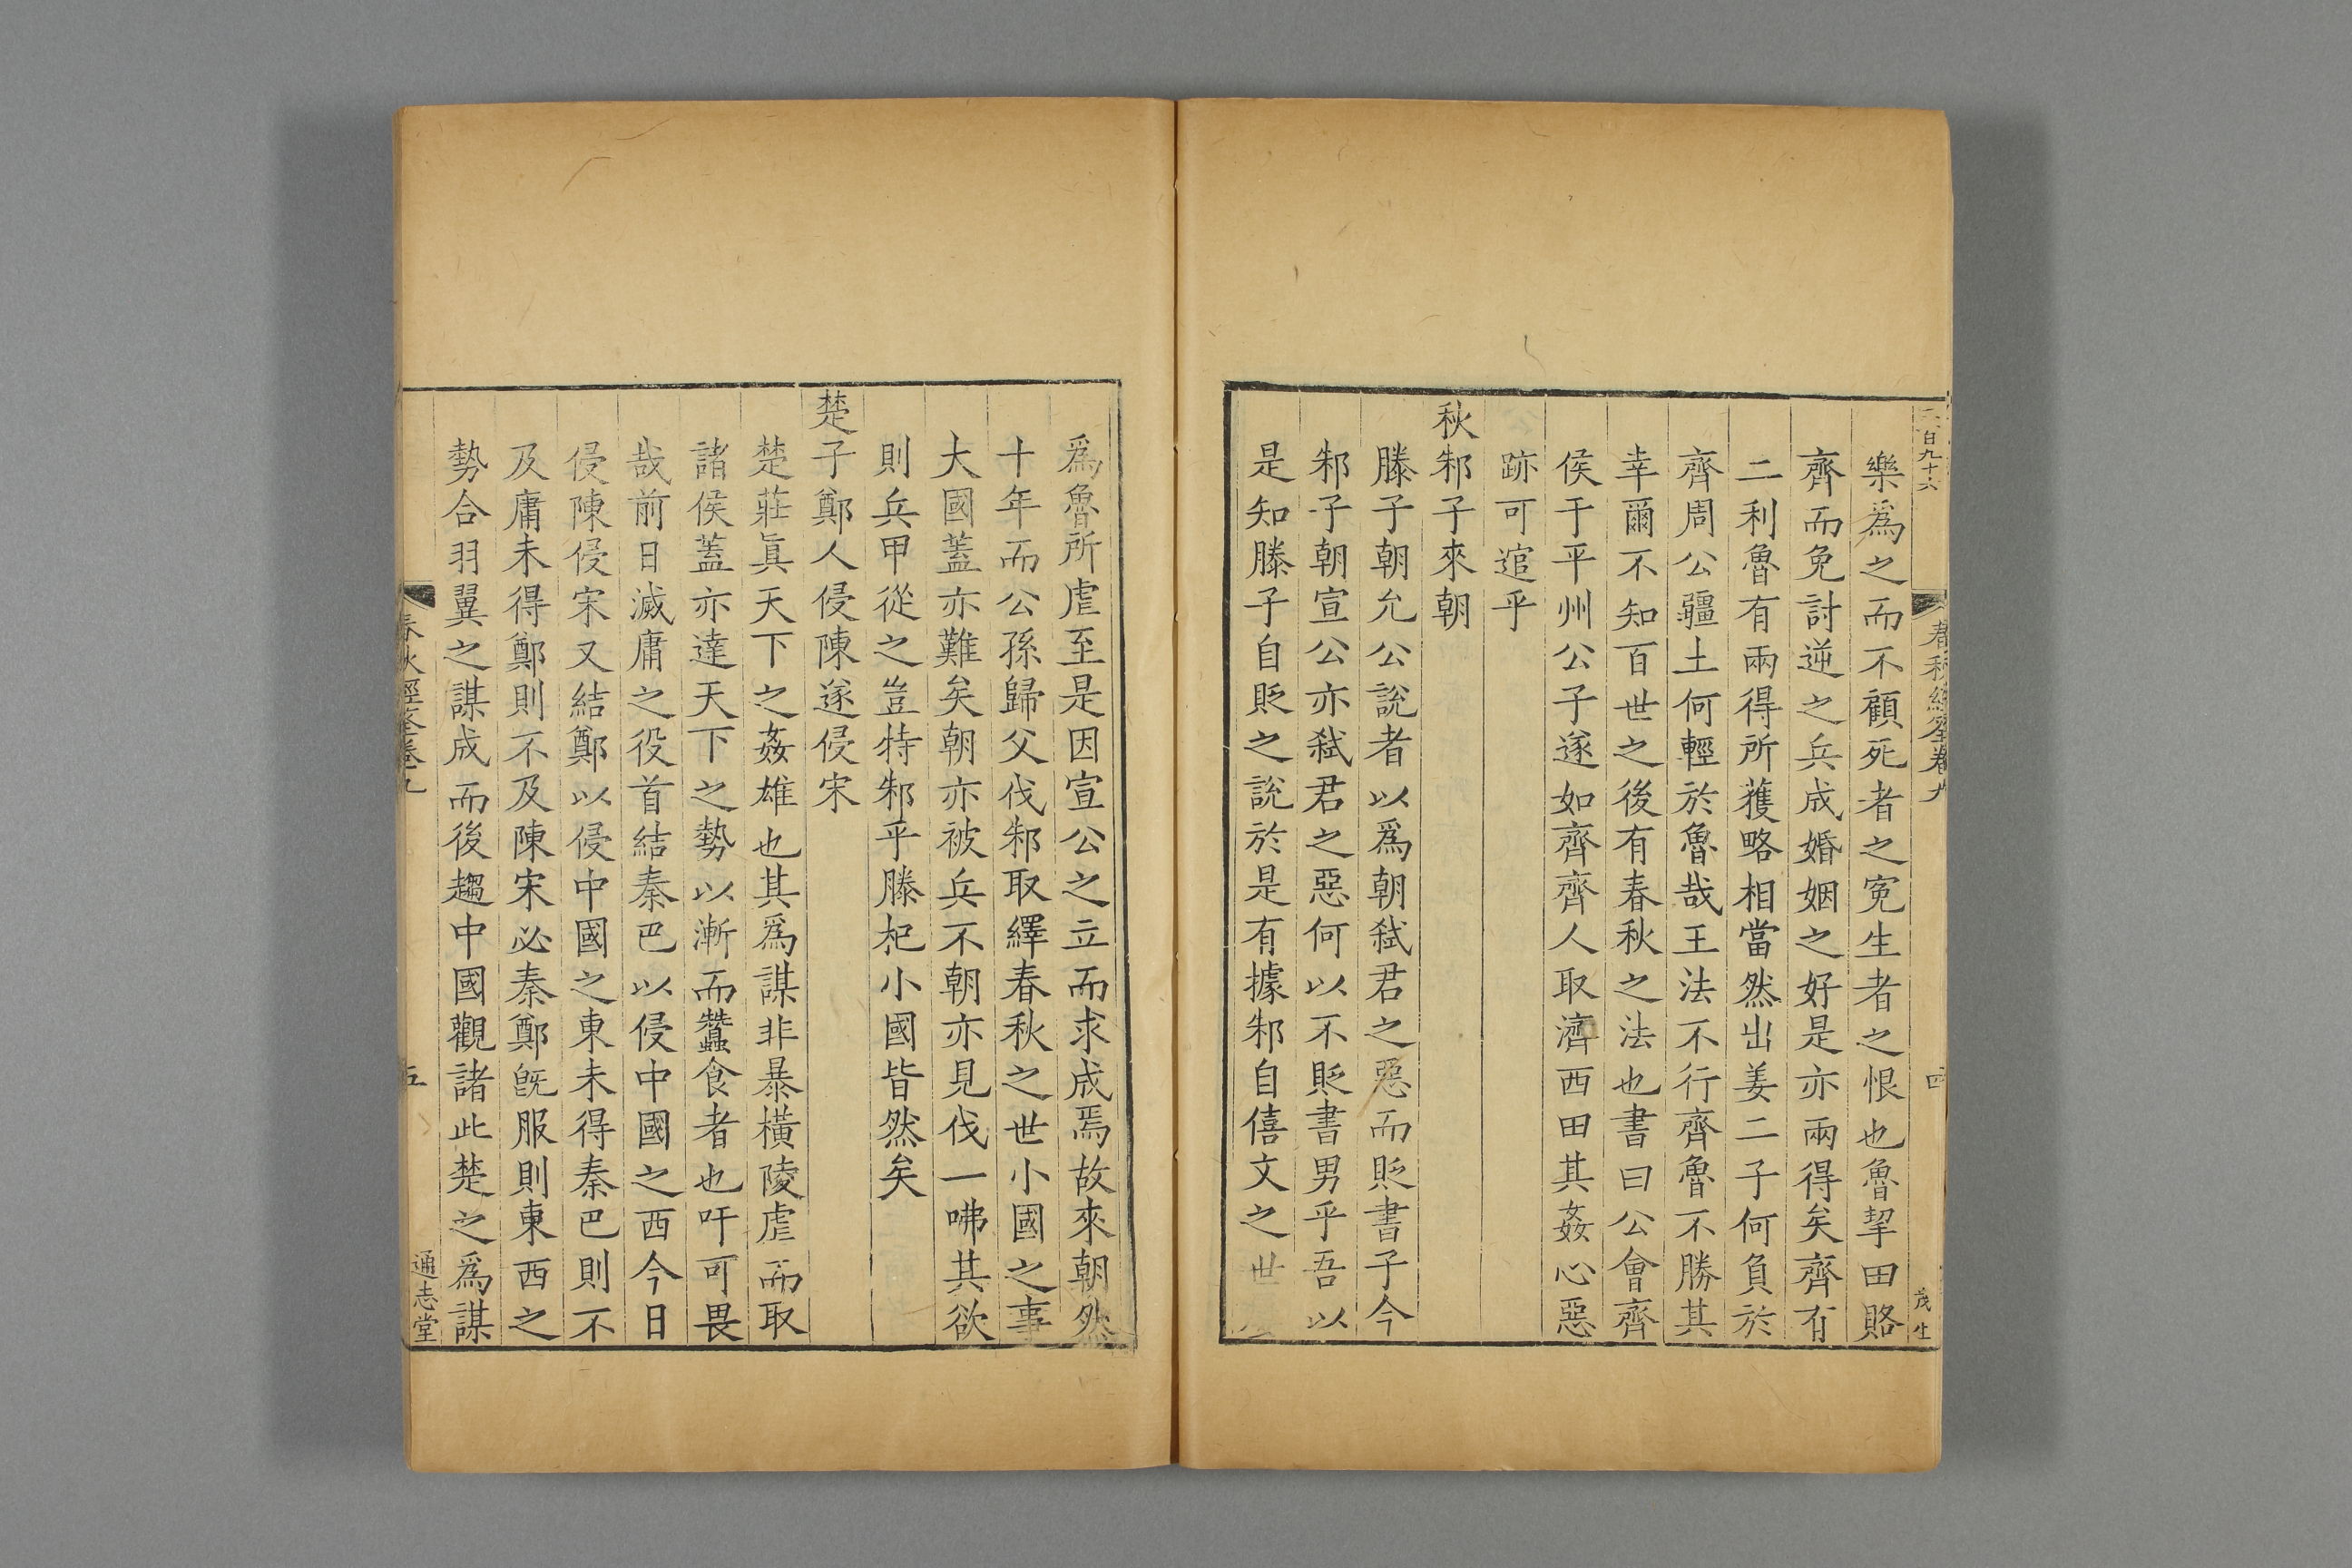 樂爲之而不顧死者之寃生者之恨也魯挈田賂
齊而免討逆之兵成婚姻之好是亦兩得矣齊有
二利魯有兩得所獲略相當然出姜二子何負於
齊周公疆土何輕於魯哉王法不行齊魯不勝其
幸爾不知百世之後有春秋之法也書曰公會齊
侯于平州公子遂如齊齊人取濟西田其姦心惡
跡可逭乎
秋邾子來朝
滕子朝允公說者以爲朝弑君之惡而貶書子今
邾子朝宣公亦弑君之惡何以不貶書男乎吾以
是知滕子自貶之說於是有據邾自僖文之世
爲魯所虐至是因宣公之立而求成焉故來朝然
十年而公孫歸父伐邾取繹春秋之世小國之事
大國蓋亦難矣朝亦被兵不朝亦見伐一咈其欲
則兵甲從之豈特邾乎滕杞小國皆然矣
楚子鄭人侵陳遂侵宋
楚莊眞天下之姦雄也其爲謀非暴橫陵虐而取
諸侯蓋亦達天下之勢以漸而蠶食者也吁可畏
哉前日滅庸之役首結秦巴以侵中國之西今日
侵陳侵宋又結鄭以侵中國之東未得秦巴則不
及庸未得鄭則不及陳宋必秦鄭旣服則東西之
勢合羽翼之謀成而後趨中國觀諸此楚之爲謀
百九十六
春秋經筌卷九
四
茂生
春秋經筌卷九
五
通志堂